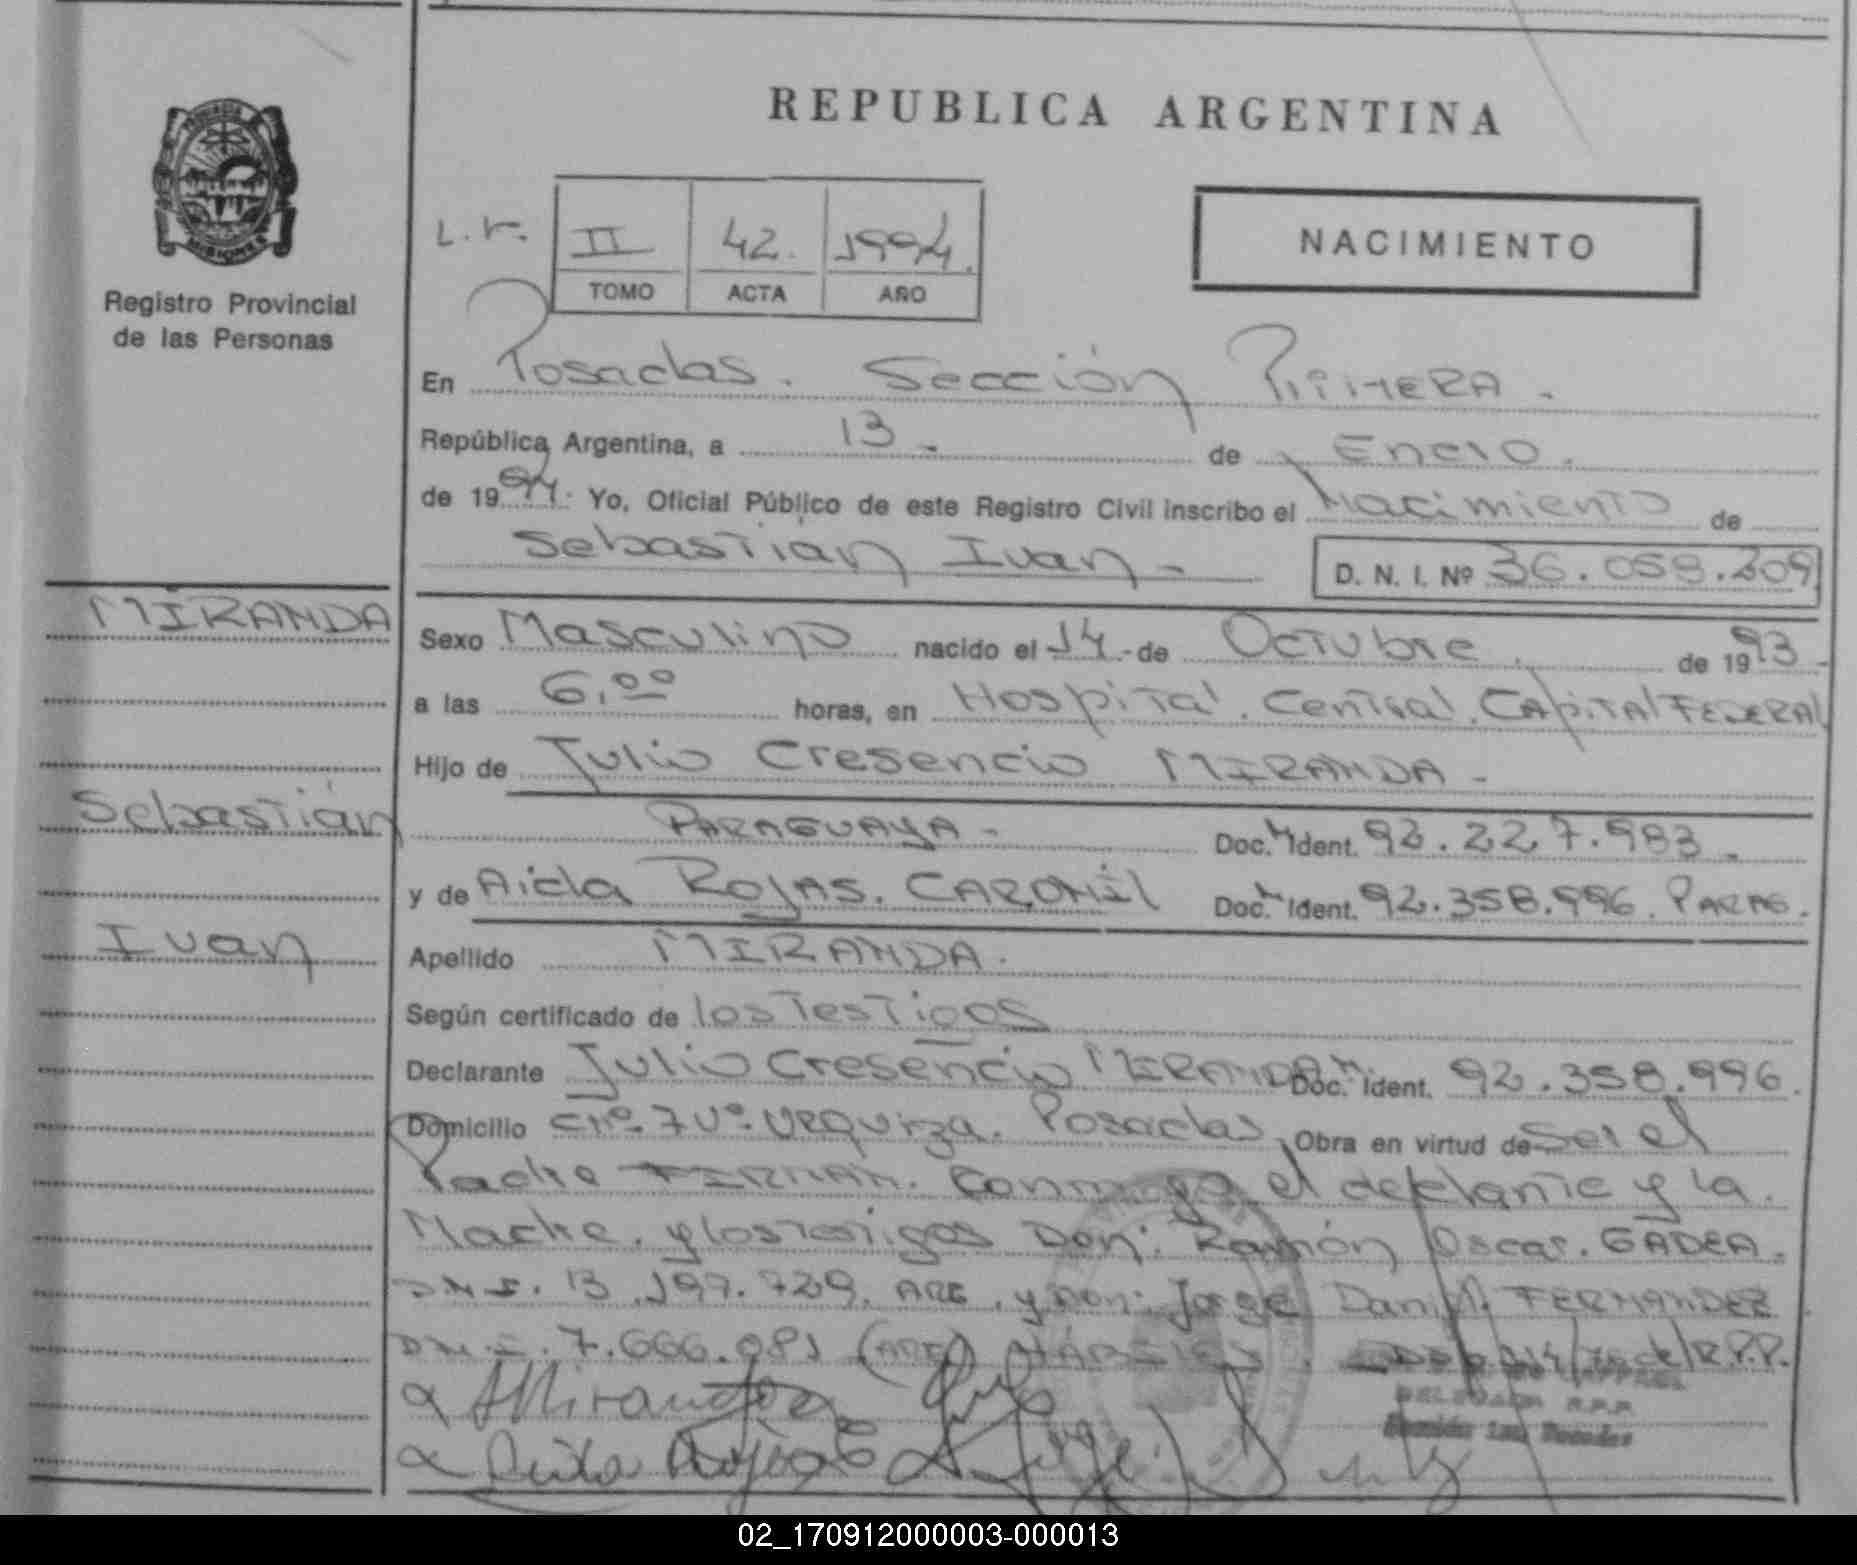 REPUBLICA ARGENTINA
L.V.
II 42. 1994.
TOMO ACTA AÑO
NACIMIENTO
Registro Provincial
de las Personas
En Posadas. Sección Primera.
República Argentina, a 13 de Enero.
de 1994. Yo, Oficial Público de este Registro Civil inscribo el Nacimiento de
Sebastián Ivan.- D. N. I. Nº 36.059.209
MIRANDA
Sebastián
Ivan
Sexo Masculino nacido el 14 de Octubre. de 1993.
a las 6,00 horas, en Hospital. Central. CApiTAl FEDERAl
Hijo de Julio Cresencio MIRANDA-
PARAGUAYA- Doc. Ident. 92.227.983.
y de Aida ROJAS. Doc. Ident. 92.358.996. PARAG.
Apellido MIRANDA.
Según certificado de los Testigos
Declarante Julio Cresencio MIRANDA Doc. Ident. 92.358.996.
Domicilio Urquiza. Posadas, Obra en virtud de Ser el
Padre FIRMAN. Conmigo el declarante y la
Madre. y los testigos Don: Ramón Oscar. GADEA.
DNI. 13.197.729. ARG. y Don: Jorge Daniel FERNANDEZ
DNI. 7.666.081 (ARG) R.P.P.
AMiranda
Aida Rojas
DELEGADA R.P.P.
02_170912000003-000013